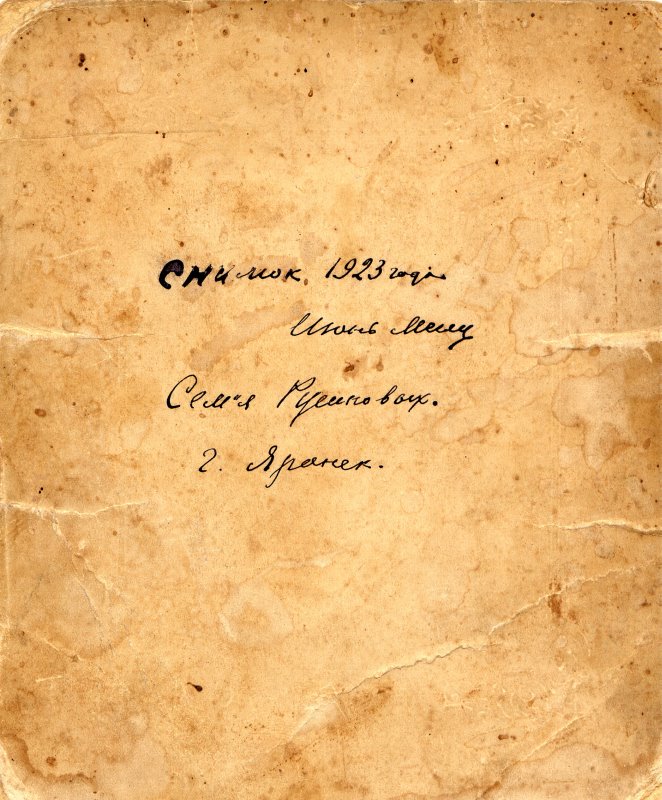 Снимок 1923 года
Июнь месяц
Сем'я Русиновых.
г. Яранск.